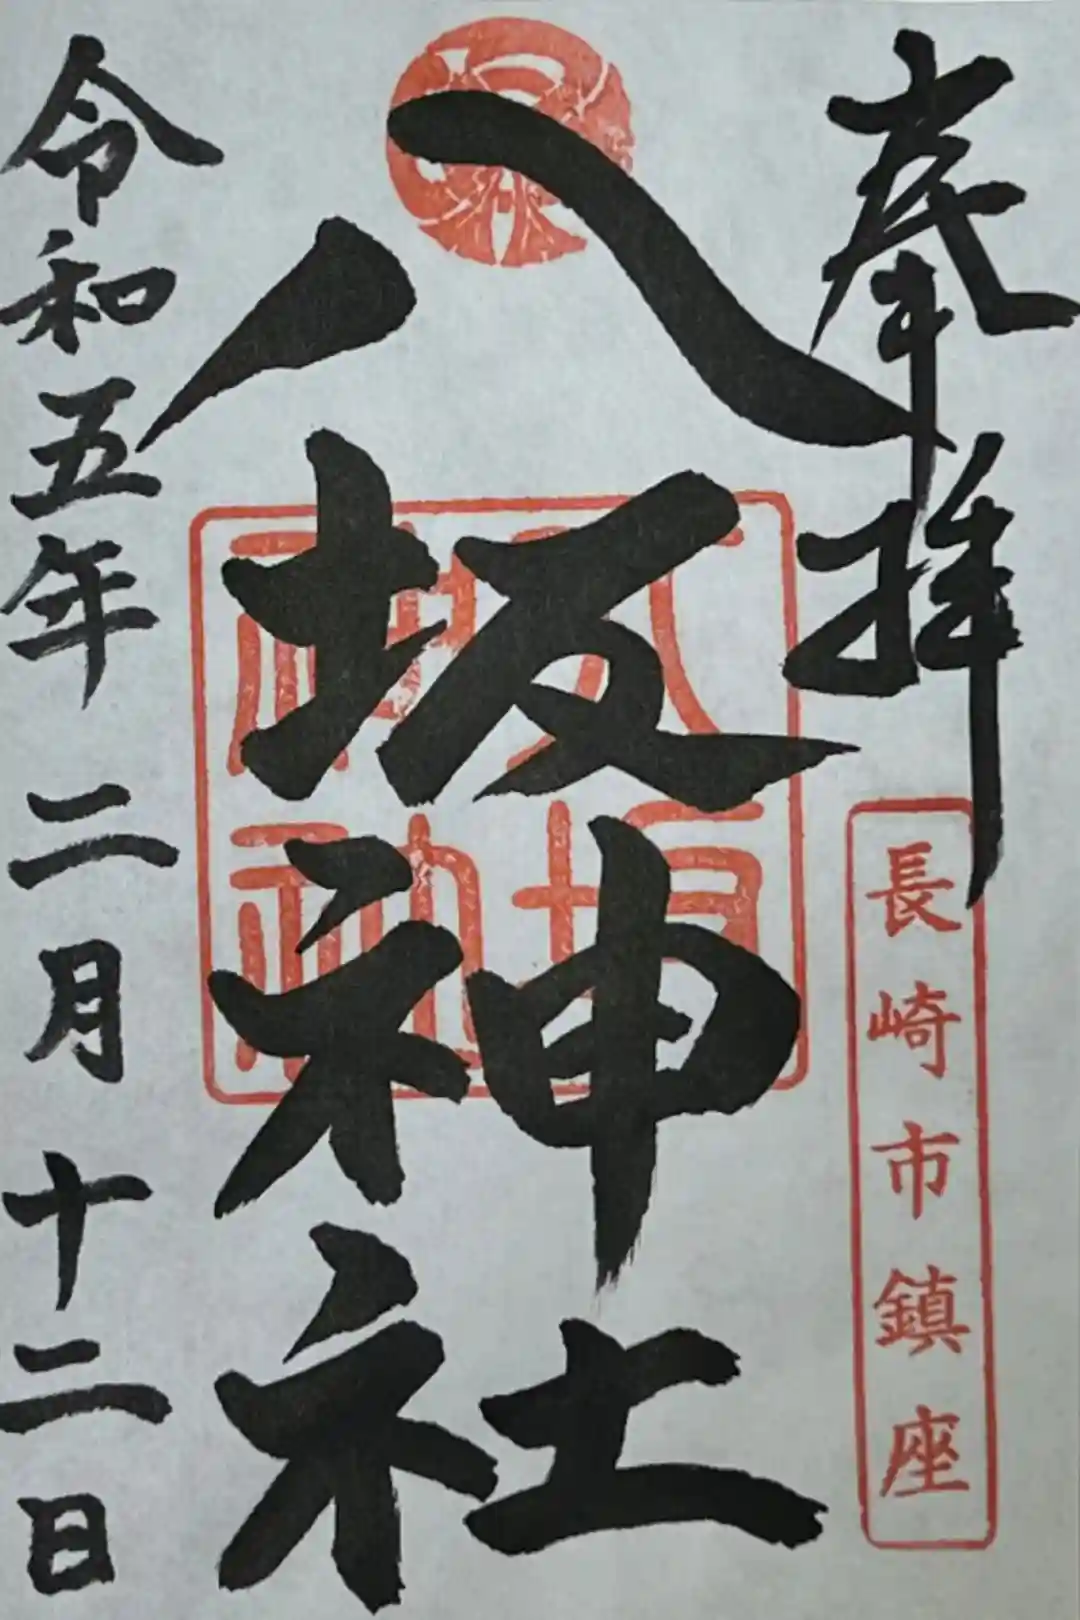 奉拝
長崎市鎮座
八坂神社
八坂
神社
令和五年二月十二日